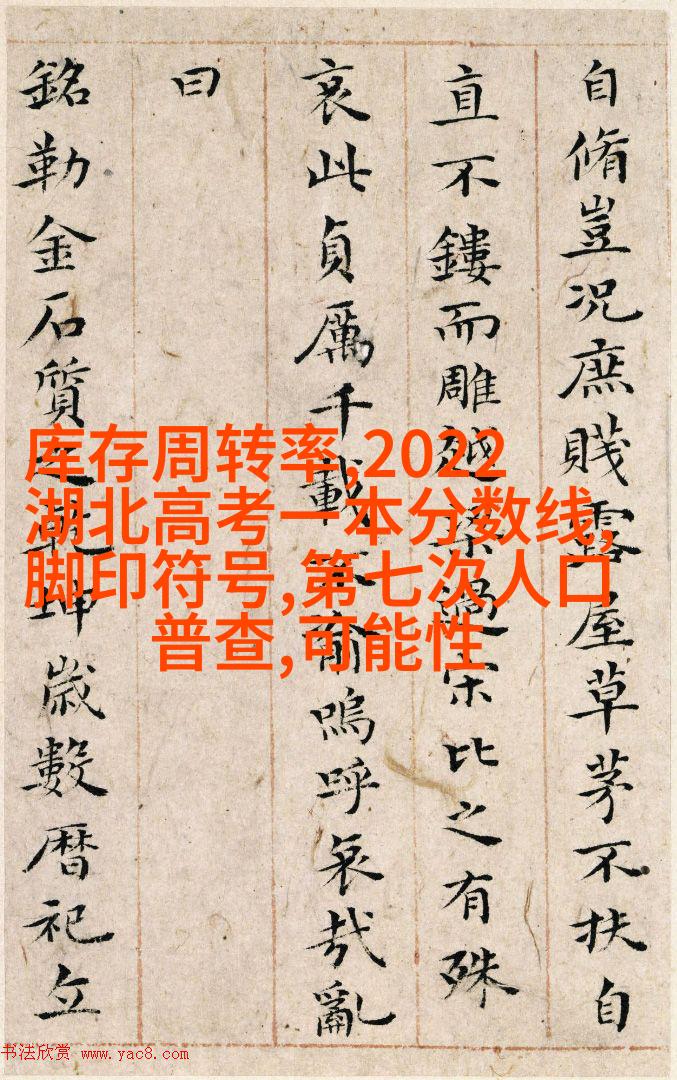 自脩豈況庶賤露屋草茅不扶自
直不鏤而雕越梁過宋比之有殊
哀此貞厲千載不渝嗚呼哀哉亂
曰
銘勒金石質之乾坤歲數暦祀立
库存周转率,2022
湖北高考一本分数线,
脚印符号,第七次人口
普查,可能性
书法欣赏 www.yac8.com